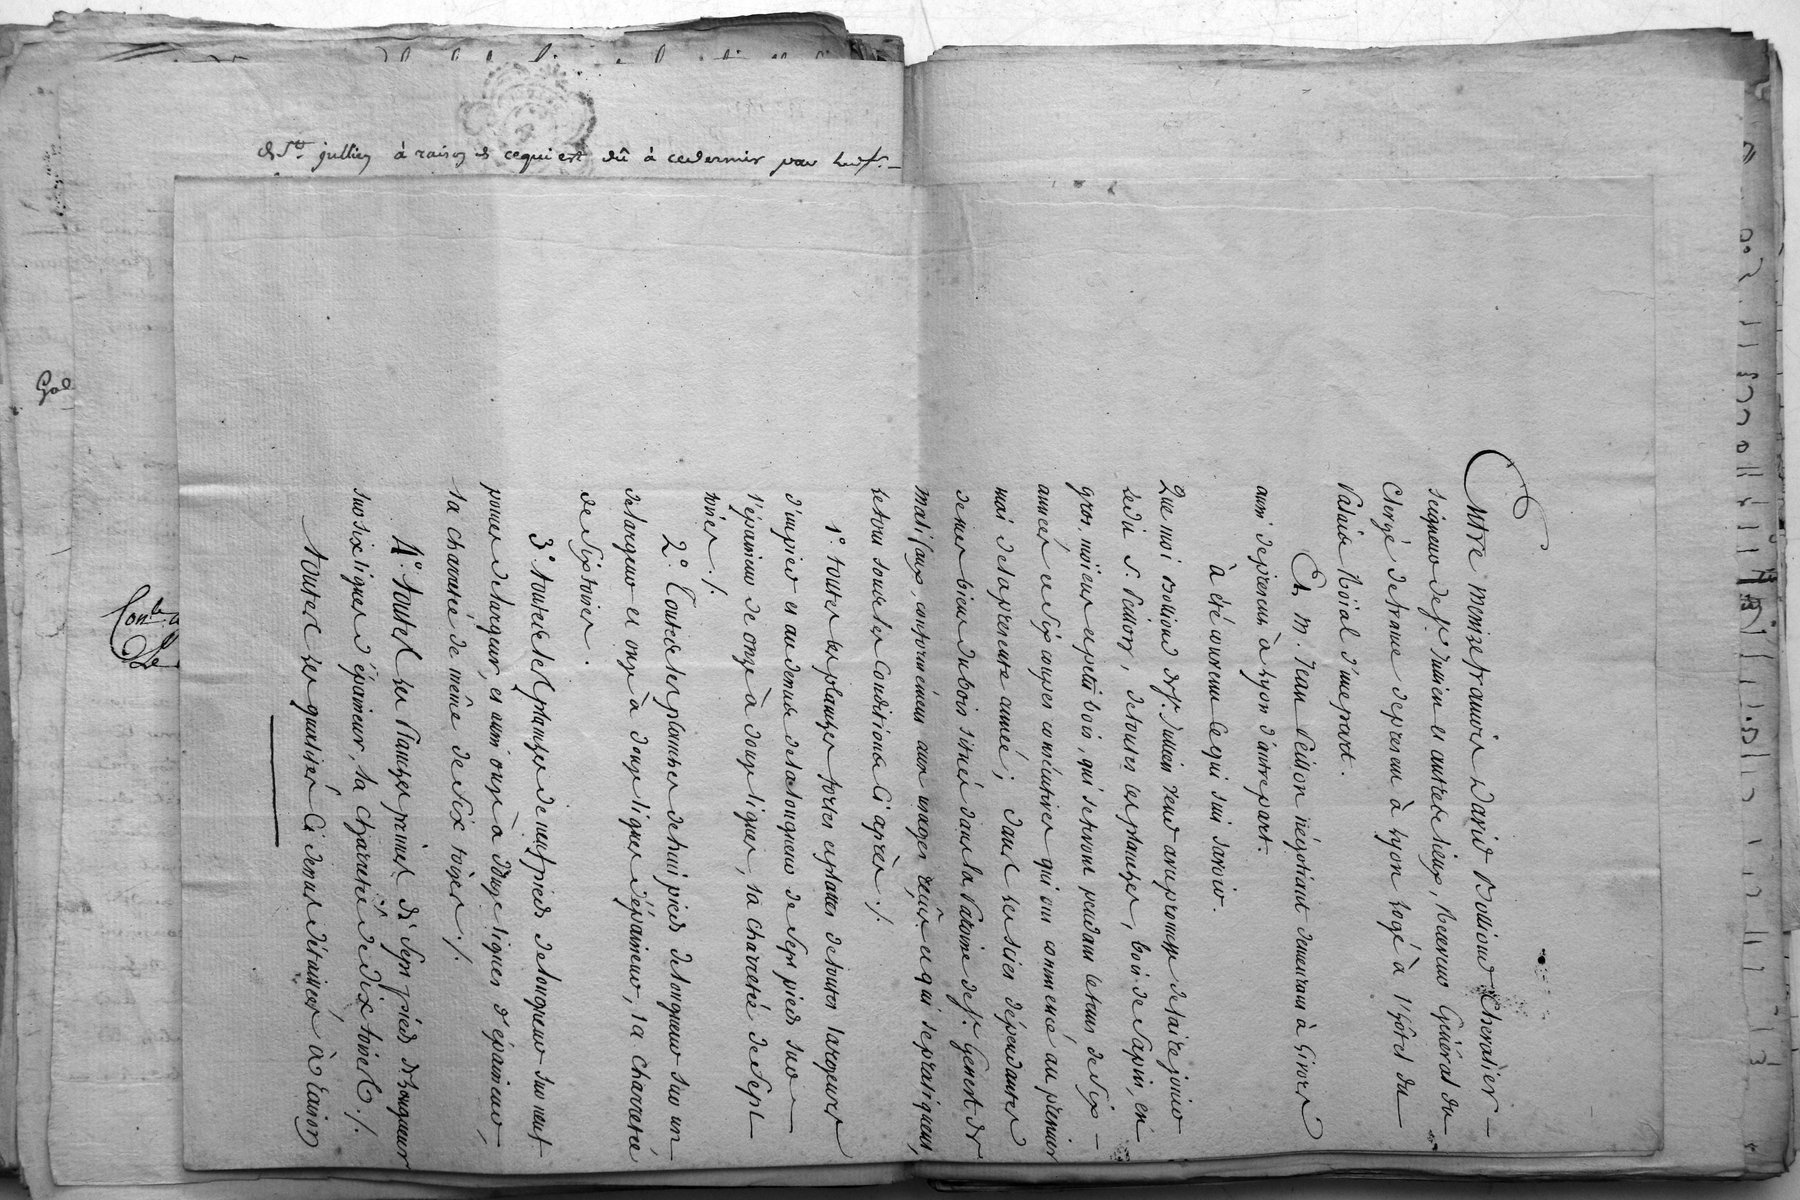 de St. jullien à raison de ce qui est dû à ce dernier par led. s.
Gal
Con.le a
Le
Entre messire francois david Bollioud Chevalier
seigneur de St. Julien et autres lieux, Receveur Général du
Clergé de france de present à Lyon logé à l'hôtel du
Palais Roïal d'une part.
Et m. Jean Peillon négotiant demeurant à Givors
aussi de present à Lyon d'autre part.
à été convenu ce qui suit savoir.
Que moi Bollioud de St. Julien vend avec promesse de faire jouir
ledit S. Peillon, de toutes les planches, bois de sapin, en
gros, moïens et petits bois, qui se feront pendant le tems de six
années et six coupes consécutives qui ont commencé au premier
mai de la presente année; dans les scies dépendantes
de mes biens du bois situés dans la Paroisse de St. Genest de
malifaux, conformément aux usages reçus et qui se pratiquent,
le tout sous les conditions ci après ./.
1.° toutes les planches fortes et plattes de toutes largeurs
d'un pied et au dessus de la longueur de sept pieds sur
l'épaisseur de onze à douze lignes, la charretée de sept
toises ./.
2.° Toutes les planches de huit pieds de longueur sur un
de largeur et onze à douze lignes d'épaisseur, la charretée
de six toises.
3.° toutes les planches de neuf pieds de longueur sur neuf
pouces de largeur, et aussi onze à douze lignes d'épaisseur,
la charretée de même de six toises ./.
4.° toutes les Planches de sept pieds de longueur
sur six lignes d'épaisseur, la charretée de dix toises ./.
toutes les quantités ci dessus détaillées à raison